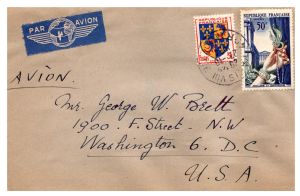 PAR AVION
RÉPUBLIQUE FRANÇAISE
50F
AVION.
Mr. George W. Brett
1900 F. Street. N.W
Washington 6. D.C.
U.S.A.